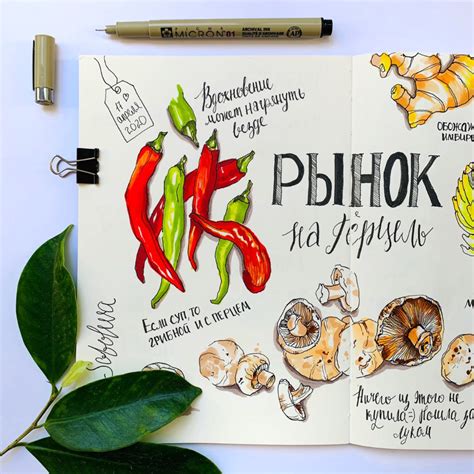 MICRON 01
ARCHIVAL INK
11
апреля
2020
Вдохновение
может нагрянуть
везде
РЫНОК
на Герцель
ЕСЛИ СУП, ТО
ГРИБНОЙ И С ПЕРЦЕМ
Ничего из этого не
купила=) Пошла за
луком